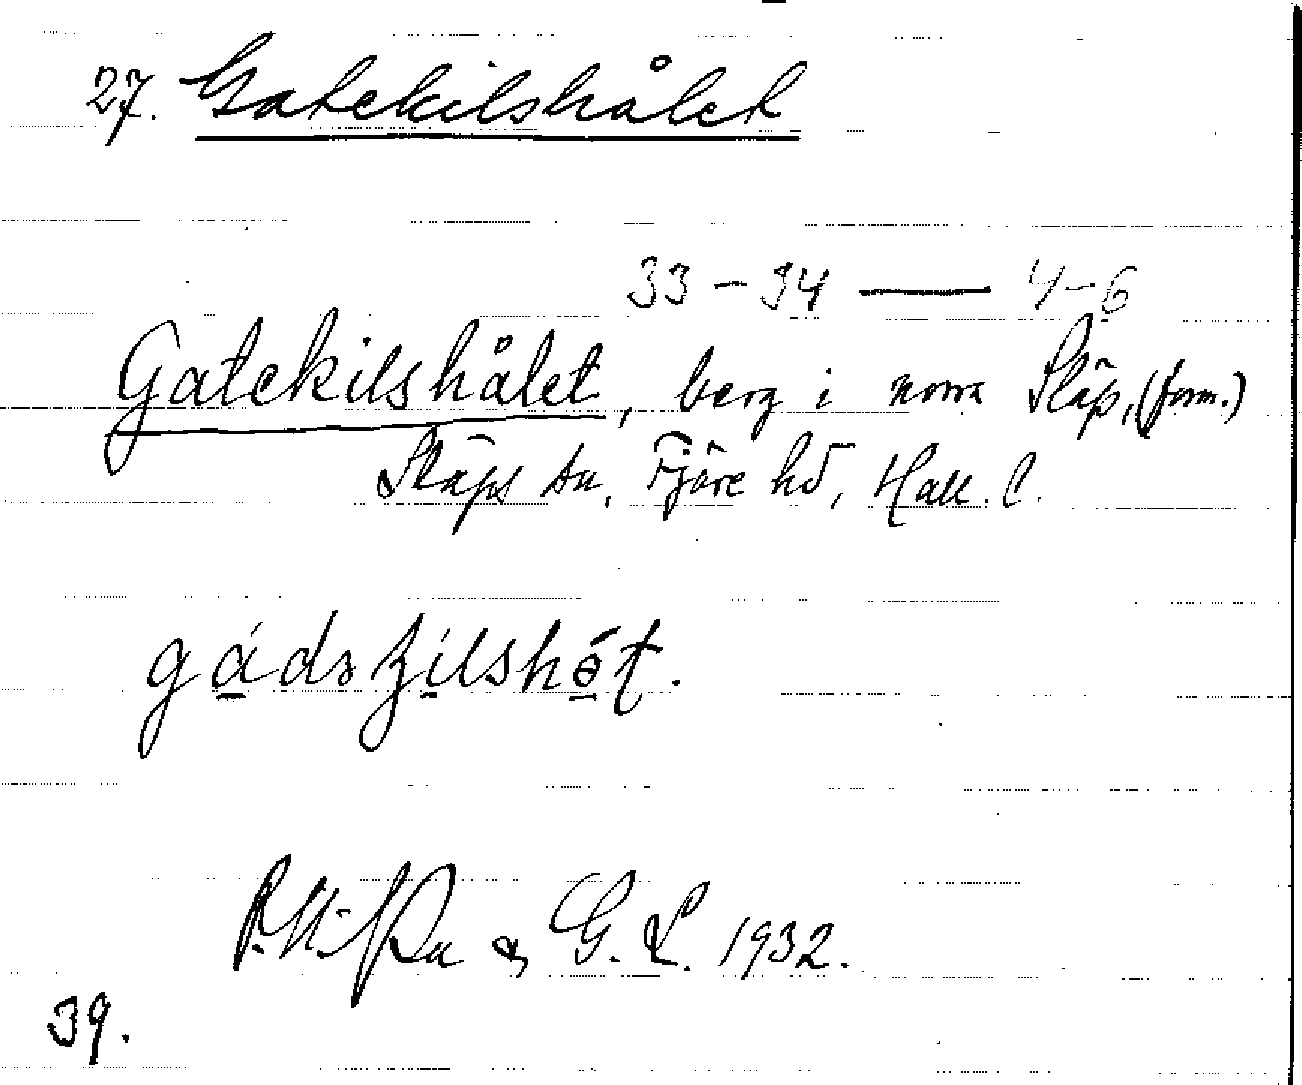 27. Gatekilshålet
33-34 — 4-6
Gatekilshålet, berg i norra Släp, (förm.)
Släps sn, Fjäre hd, Hall. l.
& G. L. 1932.
39.